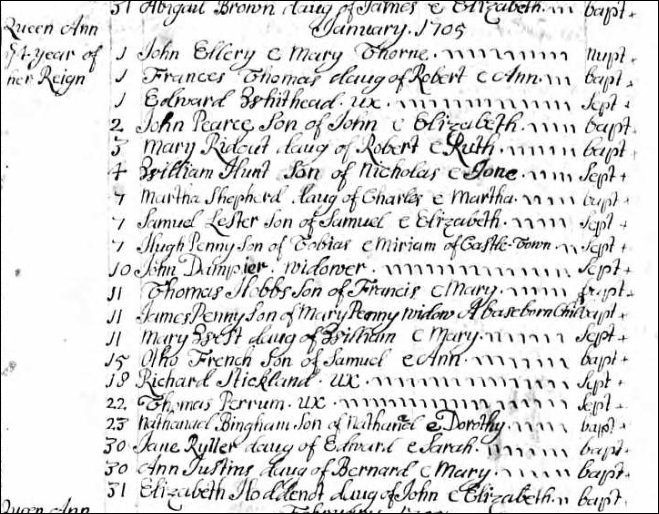 31 Abigail Brown daug of James e Elizabeth. bapt+
Queen Ann
January. 1705
yr year of
her Reign
1 John Ellery e Mary Thorne. Nupt+
1 Frances Thomas daug of Robert e Ann. bapt+
1 Edward Whithead. ux. Sept+
2 John Pearce Son of John e Elizabeth. bapt+
3 Mary Ridout daug of Robert e Ruth. bapt+
4 William Hunt Son of Nicholas e Jone. Sept+
7 Martha Shepherd daug of Charles e Martha. bapt+
7 Samuel Lester Son of Samuel e Elizabeth. Sept+
7 Hugh Penny Son of Tobias e Miriam of Castle-Town. Sept+
10 John Dampier. widower. Sept+
11 Thomas Hobbs Son of Francis e Mary. bapt+
11 James Penny Son of Mary Penny widow A baseborn Child bapt+
11 Mary West daug of William e Mary. Sept+
15 Otho French Son of Samuel e Ann. bapt+
18 Richard Stickland. ux. Sept+
22 Thomas Perrum. ux. Sept+
23 Nathanael Bingham Son of Nathanael e Dorothy. bapt+
30 Jane Ryller daug of Edward e Sarah. bapt+
30 Ann Justins daug of Bernard e Mary. bapt+
31 Elizabeth Hoddenot daug of John e Elizabeth. bapt+
Queen Ann